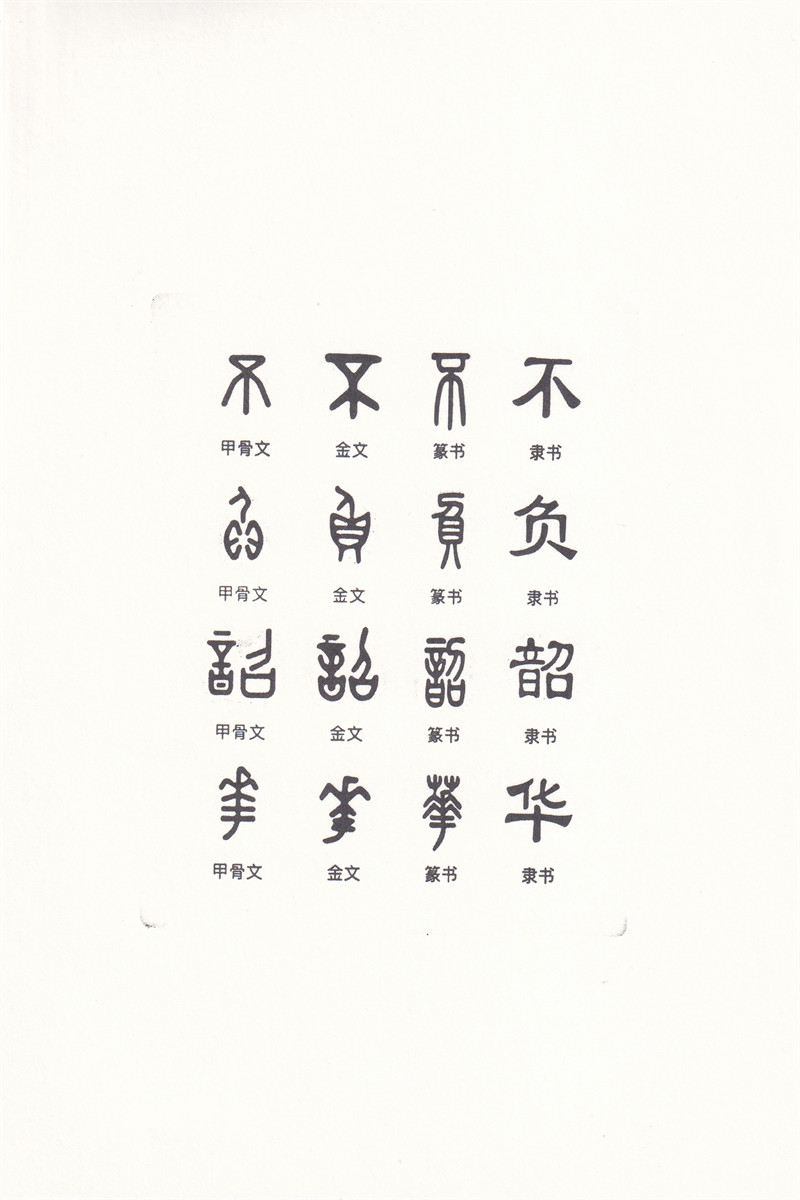 不 不 不 不
甲骨文 金文 篆书 隶书
负 负 負 负
甲骨文 金文 篆书 隶书
韶 韶 韶 韶
甲骨文 金文 篆书 隶书
华 华 華 华
甲骨文 金文 篆书 隶书